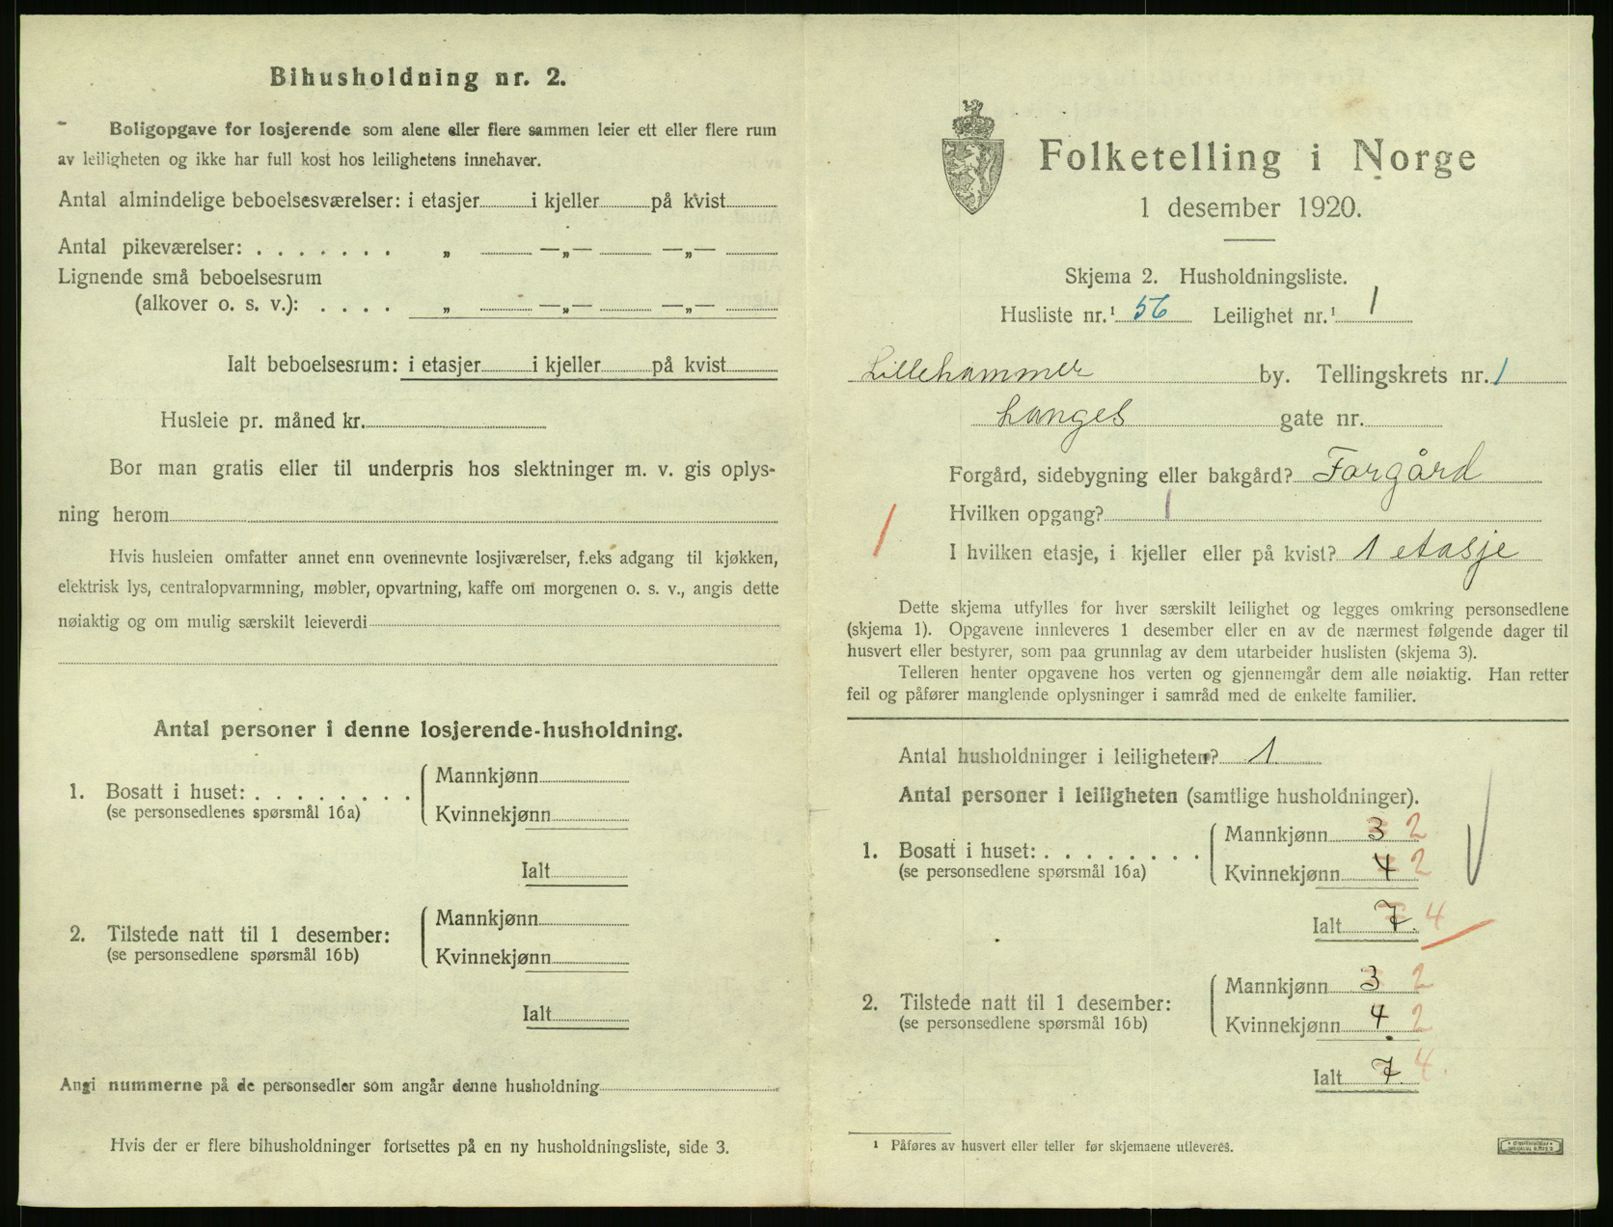 Bihusholdning nr. 2.
Boligopgave for losjerende som alene eller flere sammen leier ett eller flere rum
av leiligheten og ikke har full kost hos leilighetens innehaver.
Antal almindelige beboelsesværelser: i etasjer i kjeller på kvist
Antal pikeværelser: . . . . . . . „ —„— —„—
Lignende små beboelsesrum
(alkover o. s. v.): . . . . „ —„— —„—
Ialt beboelsesrum: i etasjer i kjeller på kvist
Husleie pr. måned kr.
Bor man gratis eller til underpris hos slektninger m. v. gis oplys-
ning herom
Hvis husleien omfatter annet enn ovennevnte losjiværelser, f.eks adgang til kjøkken,
elektrisk lys, centralopvarmning, møbler, opvartning, kaffe om morgenen o. s. v., angis dette
nøiaktig og om mulig særskilt leieverdi
Antal personer i denne losjerende-husholdning.
1. Bosatt i huset: . . . . . . . .
(se personsedlenes spørsmål 16a)
Mannkjønn
Kvinnekjønn
Ialt
2. Tilstede natt til 1 desember:
(se personsedlene spørsmål 16b)
Mannkjønn
Kvinnekjønn
Ialt
Angi nummerne på de personsedler som angår denne husholdning
Hvis der er flere bihusholdninger fortsettes på en ny husholdningsliste, side 3.
Folketelling i Norge
1 desember 1920.
Skjema 2. Husholdningsliste.
Husliste nr.¹ 56 Leilighet nr.¹ 1
Lillehammer by. Tellingskrets nr. 1
Langes gate nr.
Forgård, sidebygning eller bakgård? Forgård
1 Hvilken opgang? 1
I hvilken etasje, i kjeller eller på kvist? 1 etasje
Dette skjema utfylles for hver særskilt leilighet og legges omkring personsedlene
(skjema 1). Opgavene innleveres 1 desember eller en av de nærmest følgende dager til
husvert eller bestyrer, som paa grunnlag av dem utarbeider huslisten (skjema 3).
Telleren henter opgavene hos verten og gjennemgår dem alle nøiaktig. Han retter
feil og påfører manglende oplysninger i samråd med de enkelte familier.
Antal husholdninger i leiligheten? 1
Antal personer i leiligheten (samtlige husholdninger).
1. Bosatt i huset: . . . . . . . .
(se personsedlene spørsmål 16a)
Mannkjønn 3 2
Kvinnekjønn 4 2
Ialt 7. 4
2. Tilstede natt til 1 desember:
(se personsedlene spørsmål 16b)
Mannkjønn 3 2
Kvinnekjønn 4 2
Ialt 7. 4.
¹ Påføres av husvert eller teller før skjemaene utleveres.